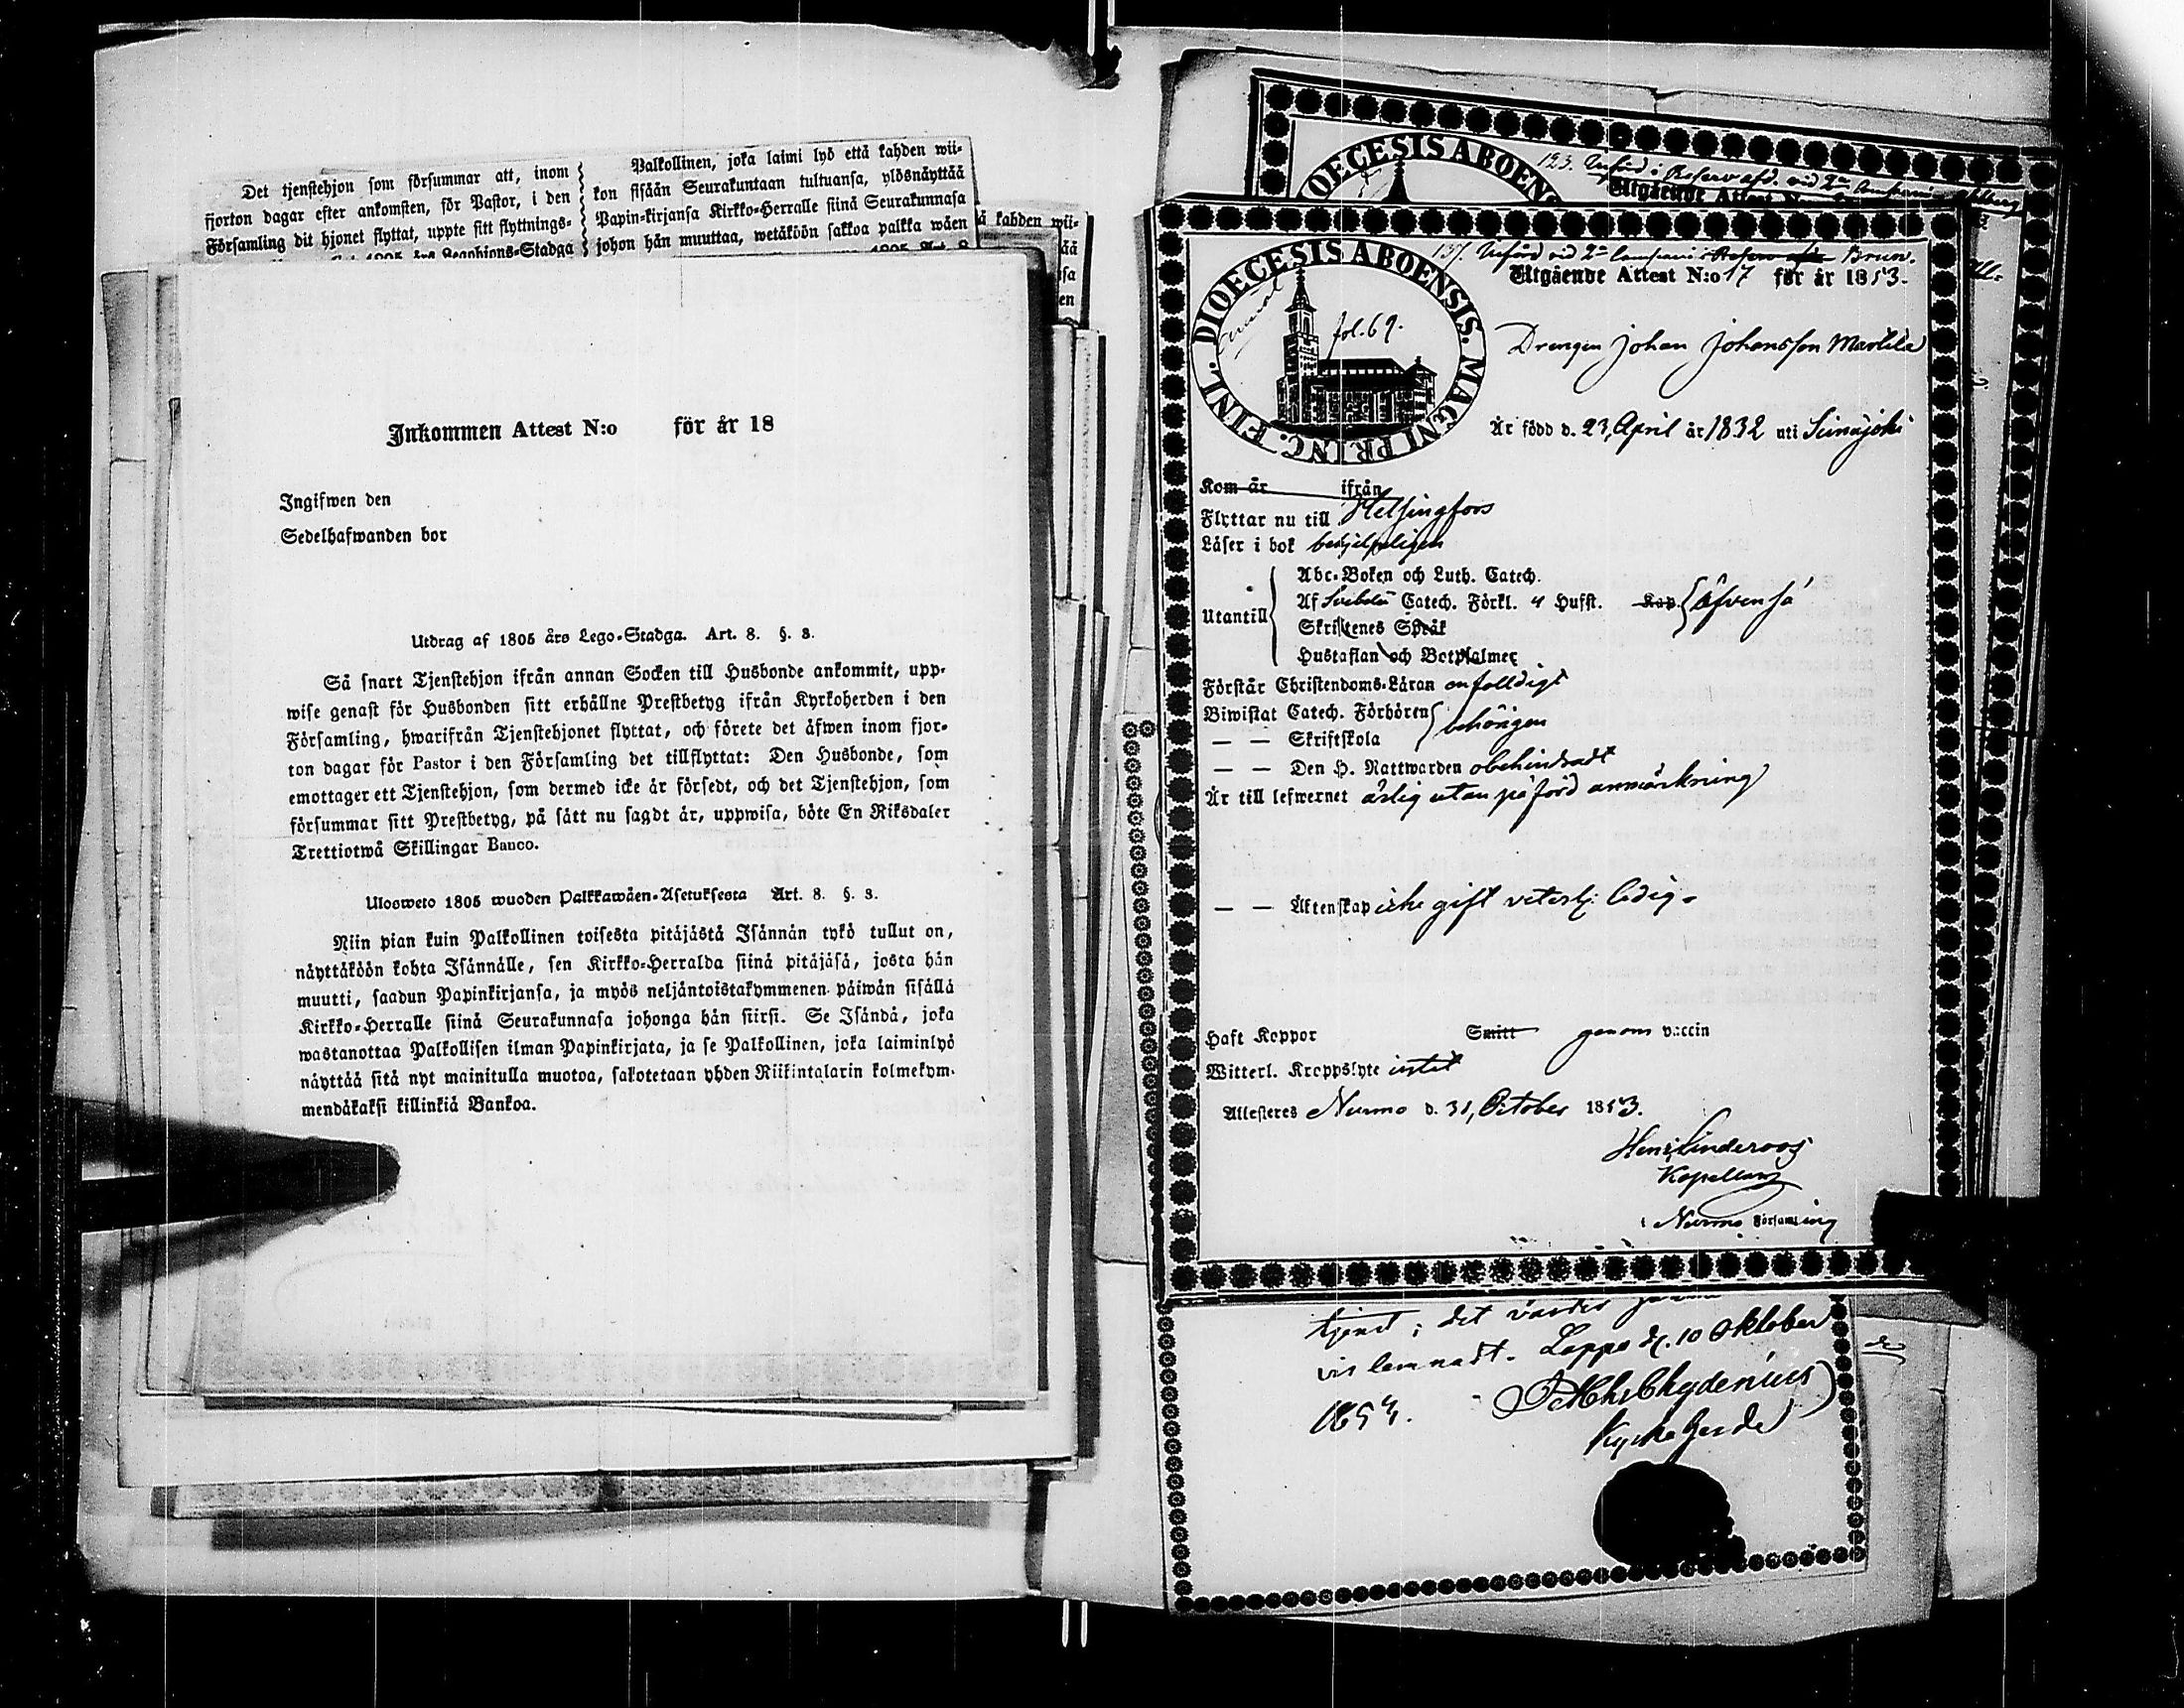 Det tjenstehjon som försummar att, inom
fjorton dagar efter ankomsten, för Pastor, i den
Församling dit hjonet flyttat, uppte sitt flyttnings-
1805 års Legohjons-Stadga
Palkollinen, joka laimi lyö että kahden wii-
kon sisään Seurakuntaan tultuansa, ylösnäyttää
Papin-kirjansa Kirkko-Herralle siinä Seurakunnasa
johon hän muuttaa, wetäköön sakkoa palkka wäen
1805 Art. 8
kahden wii-
Inkommen Attest N:o för år 18
Ingifwen den
Sedelhafwanden bor
Utdrag af 1805 års Lego-Stadga. Art. 8. §. 3.
Så snart Tjenstehjon ifrån annan Socken till Husbonde ankommit, upp-
wise genast för Husbonden sitt erhållne Prestbetyg ifrån Kyrkoherden i den
Församling, hwarifrån Tjenstehjonet flyttat, och förete det äfwen inom fjor-
ton dagar för Pastor i den Församling det tillflyttat: Den Husbonde, som
emottager ett Tjenstehjon, som dermed icke är försedt, och det Tjenstehjon, som
försummar sitt Prestbetyg, på sätt nu sagdt är, uppwisa, böte En Riksdaler
Trettiotwå Skillingar Banco.
Ulosweto 1805 wuoden Palkkawäen-Asetuksesta Art. 8. §. 3.
Niin pian kuin Palkollinen toisesta pitäjästä Isännän tykö tullut on,
näyttäköön kohta Isännälle, sen Kirkko-Herralda siinä pitäjäsä, josta hän
muutti, saadun Papinkirjansa, ja myös neljäntoistakymmenen päiwän sisällä
Kirkko-Herralle siinä Seurakunnasa johonga hän siirsi. Se Isändä, joka
wastanottaa Palkollisen ilman Papinkirjata, ja se Palkollinen, joka laiminlyö
näyttää sitä nyt mainitulla muotoa, sakotetaan yhden Riikintalarin kolmekym-
mendäkaksi killinkiä Bankoa.
DIOECESIS ABOENS
123. Införd i Reserv afd. vid 2dra
Utgående Attest N
137. Införd vid 2dra Compani Reserv Brun.
Utgående Attest N:o 17 för år 1853.
DIOECESIS ABOENSIS. MAGNI PRINC. FINL.
fol. 69.
Drengen Johan Johansson Marttila
Är född d. 23, April år 1832 uti Seinäjoki
Kom år ifrån
Flyttar nu till Helsingfors
Läser i bok behjelpeligen
Utantill
Abc-Boken och Luth. Catech.
Af Svebelii Catech. Förkl. 4 Hufst. Kap. äfvenså
Skriftenes Språk
Hustaflan och Botpsalmer
Förstår Christendoms-Läran enfalldigt
Biwistat Catech. Förhören behörigen
— — Skriftskola
— — Den H. Nattwarden obehindradt
Är till lefwernet ärlig utan påförd anmärkning
— — Äktenskap icke gift veterl: ledig.
Haft Koppor Smitt genom vaccin
Witterl. Kroppslyte intet
Attesteres Nurmo d. 31, October 1853.
Hen: Linderoos
Kapellan
i Nurmo Församling
tjenst; det varder
vis lemnadt. Lappo d. 10 Oktober
1853.
Chydenius
KyrkoHerde